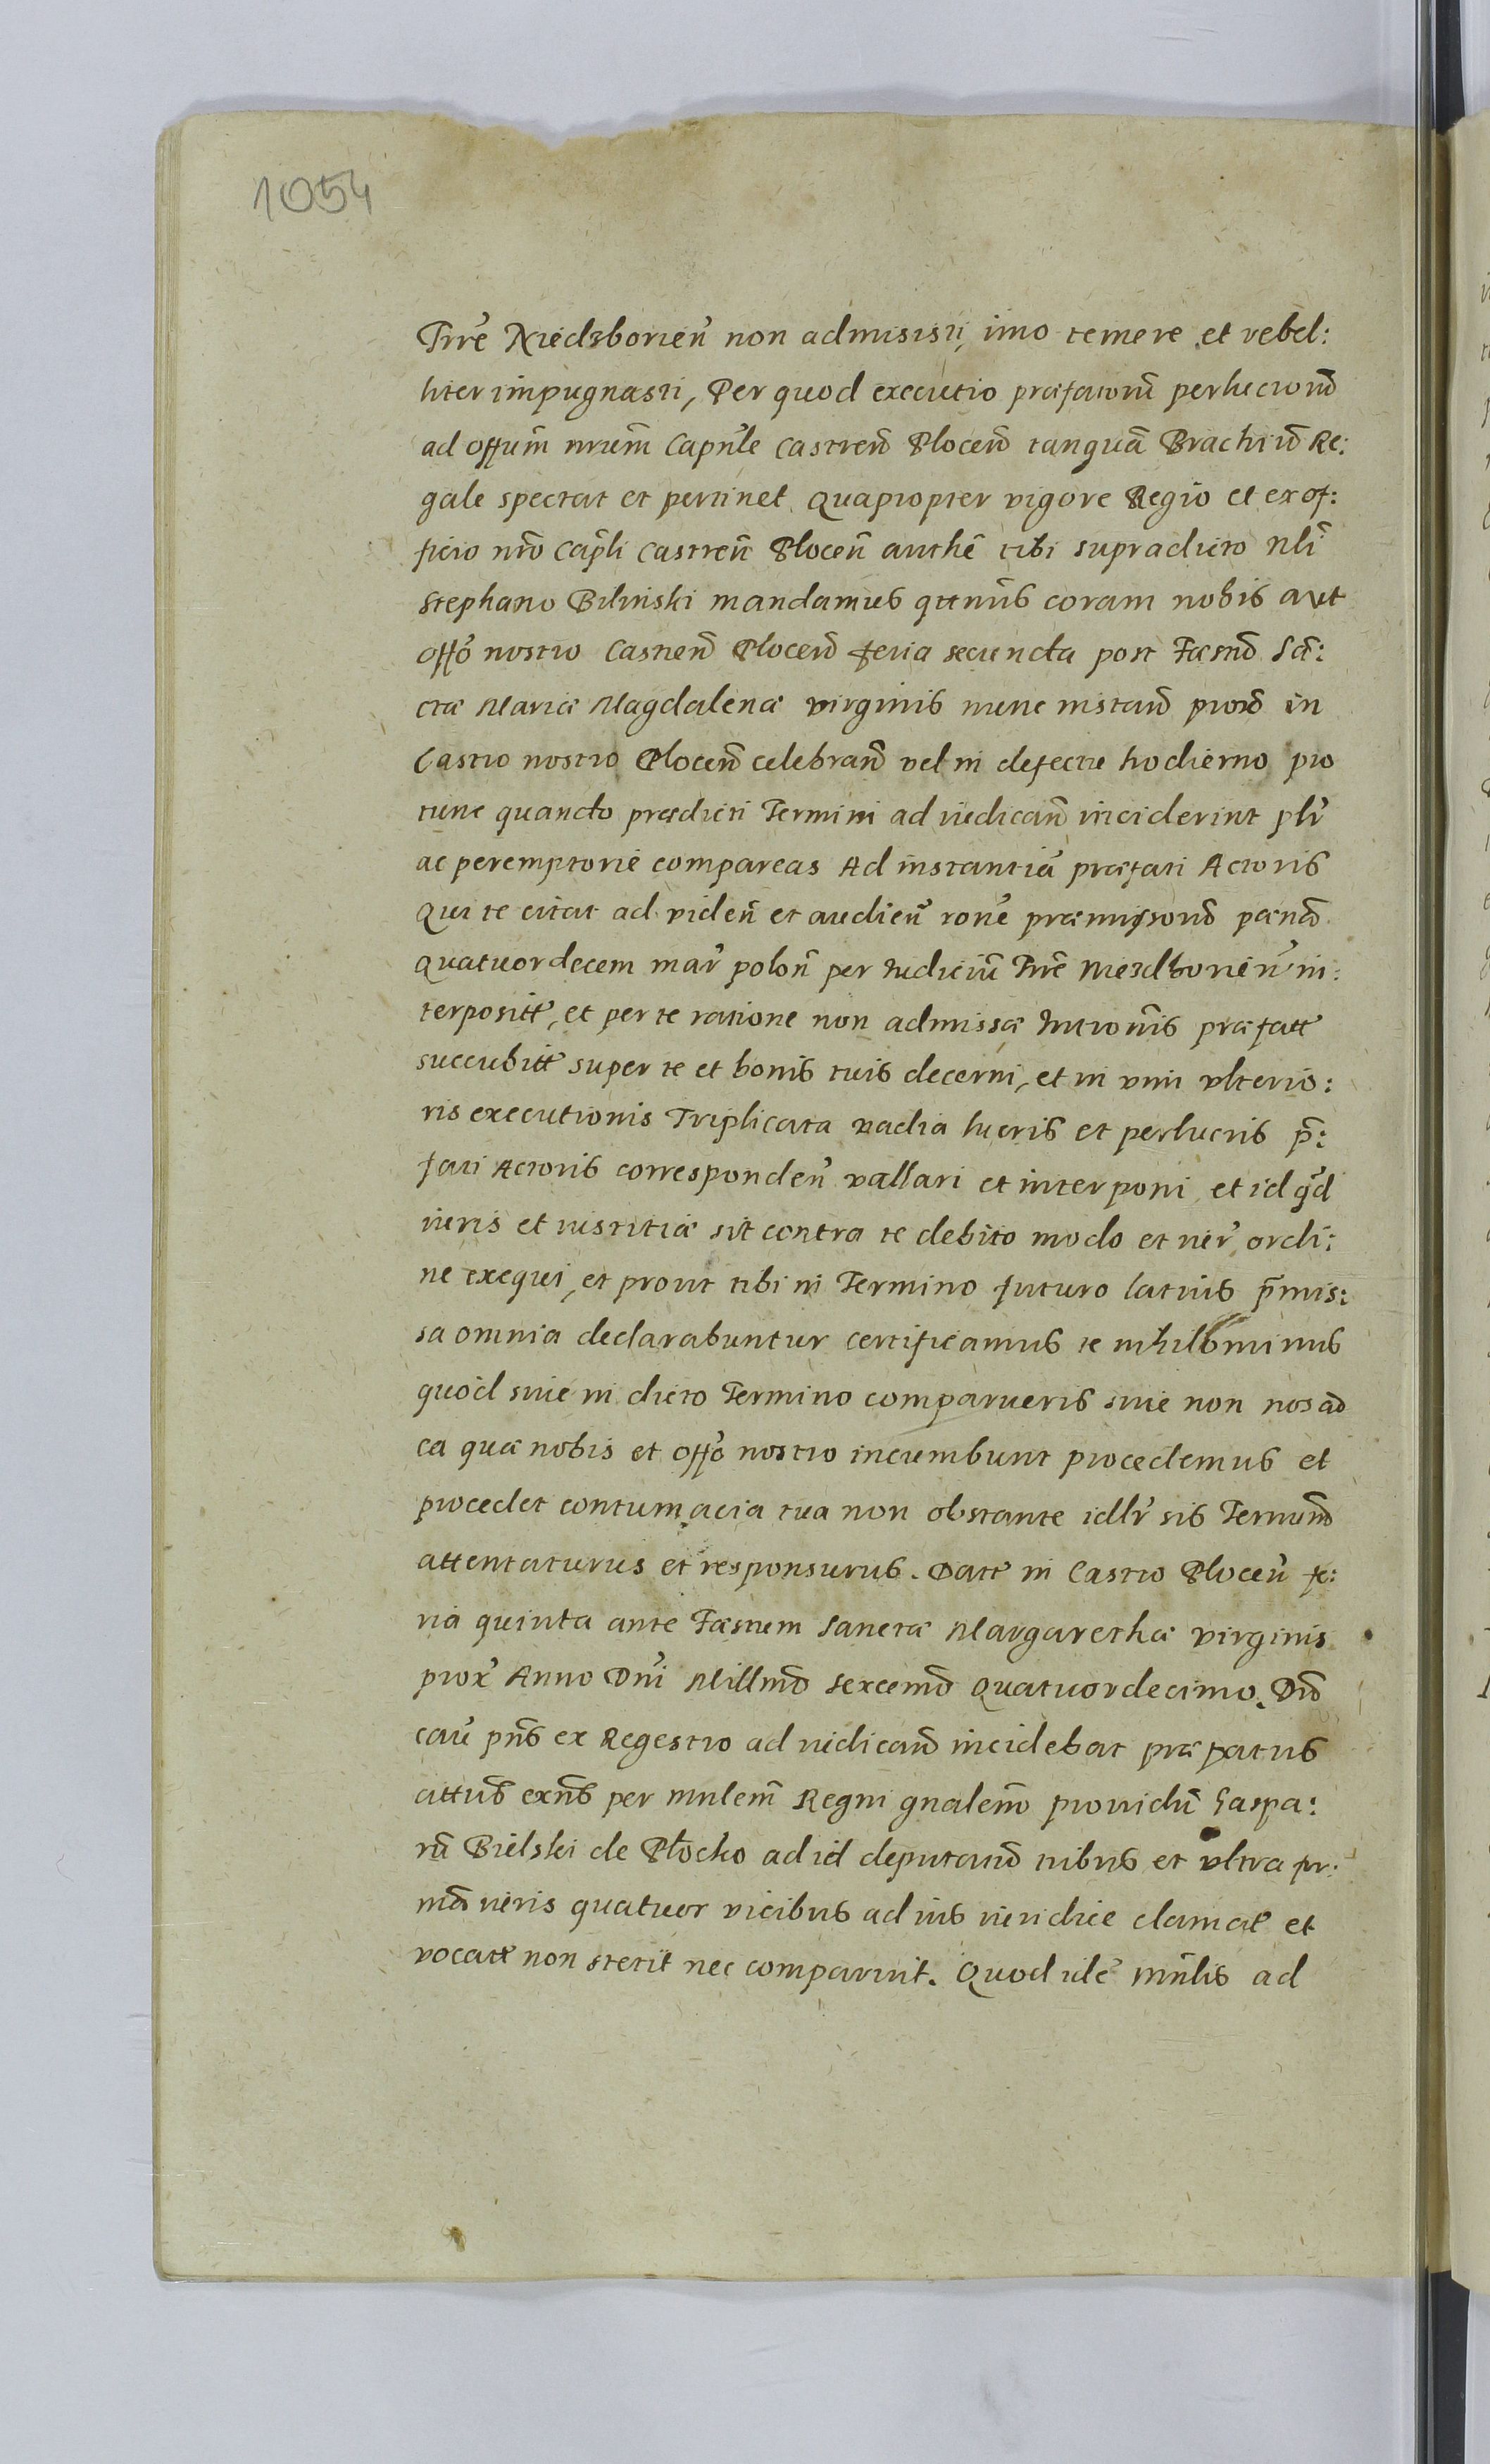 1054
Trrẽ Niedzborień non admisisti, imo temere et rebel:
liter impugnasti, Per quod executio præfatorũ perlucrorũ
ad offum nrum Capnłe Castreñ Ploceñ tanquã Brachiũ Re:
gale spectat et pertinet Quapropter vigore Regio et ex of:
ficio nrõ Capłi Castreñ Plocen̄ authẽ tibi supradicto Nli
Stephano Bilinski mandamus qtenũs coram nobis aut
offõ nostro Castreñ Ploceñ feria secunda post Fæstũ San:
ctæ Mariæ Magdalenæ virginis nunc instañ proxõ in
Castro nostro Ploceñ celebrañ vel in defectu hodierno pro
tunc quando prædicti Termini ad iudicañ inciderint plr̃
ac peremptoriè compareas Ad instantiã præfati Actoris
Qui te citat ad videñ et audieñ roñe præmissorũ pænã
quatuordecem mar̃ poloñ per Iudiciũ Trrẽ Niedzborieñ in:
terposittã, et per te ratione non admissæ Intromis præfattæ
succubittã super te et bonis tuis decerni, et in vim vlterio:
ris executionis Triplicata vadia lucris et perlucris p̃:
fati Actoris correspondeñ vallari et interponi, et id qd̃
iuris et iustitiæ sit contra te debito modo et iur̃ ordi:
ne exequi, et prout tibi in Termino futuro latius p̃mis:
sa omnia declarabuntur certificamus te nihilominus
quod siue in dicto Termino comparueris siue non nos ad
ea quæ nobis et offõ nostro incumbunt procedemus et
procedet contumacia tua non obstante idlr̃ sis Terminũ
attentaturus et responsurus. Datt in Castro Ploceñ fe:
ria quinta ante Fæstum Sanctæ Margarethæ virginis
prox̃ Anno Dñi Millmõ sexcemõ Quatuordecimo. Dũ
cau p̃ns ex Regestro ad iudicañ incidebat præfatus
cittus exñs per mnlem̃ Regni gnalem̃ prouidũ Gaspa:
rũ Bielski de Płocko ad id deputatũ tribus et vltra for:
mã iuris quatuor vicibus ad ius iuridice clamat et
vocatt non stetit nec comparuit. Quod idẽ mñlis ad